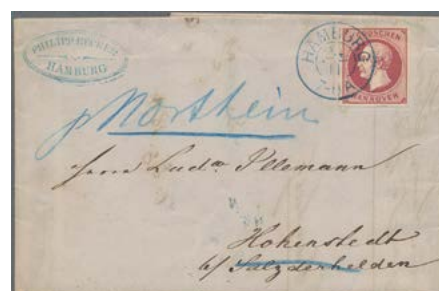 PHILIPP BECKER
HAMBURG
HAMBURG
GROSCHEN
HANNOVER
p Northeim
Herrn Ludw
Hohenstedt
b/ Salzderhelden